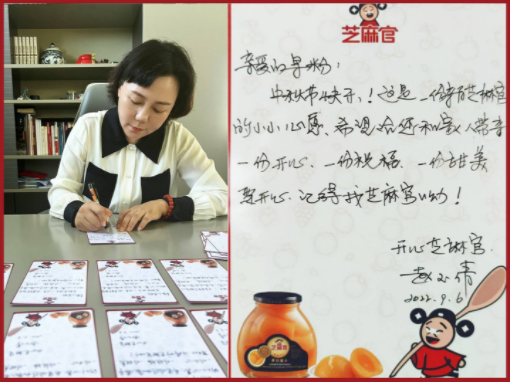 芝麻官
亲爱的粉：
中秋节快乐！这是一份芝麻官
的小小心愿、希望给您和家人带去
一份开心、一份祝福、一份甜美
要开心、记得找芝麻官呦！
开心芝麻官
赵
2022.9.6
芝麻官